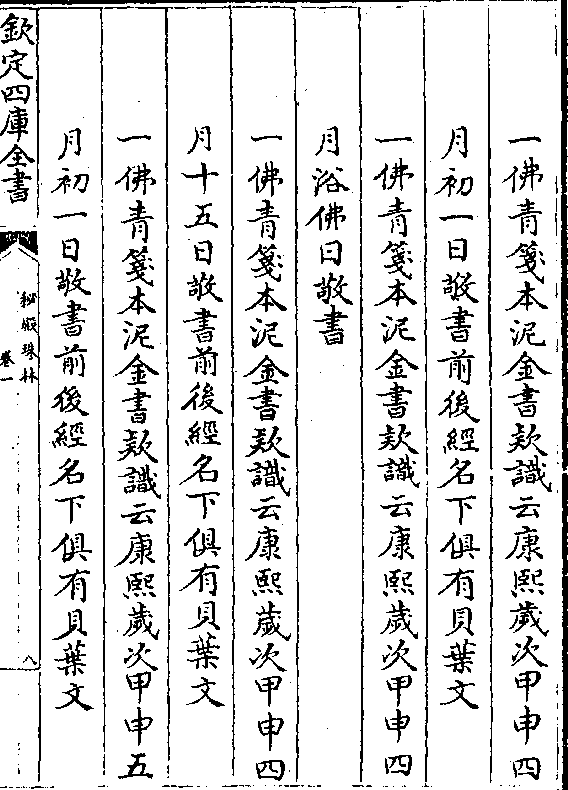 一佛青箋本泥金書欵識云康熙歲次甲申四
月初一日敬書前後經名下俱有貝葉文
一佛青箋本泥金書欵識云康熙歲次甲申四
月浴佛日敬書
一佛青箋本泥金書欵識云康熙歲次甲申四
月十五日敬書前後經名下俱有貝葉文
一佛青箋本泥金書欵識云康熙歲次甲申五
月初一日敬書前後經名下俱有貝葉文
欽定四庫全書
秘殿珠林
卷一
八